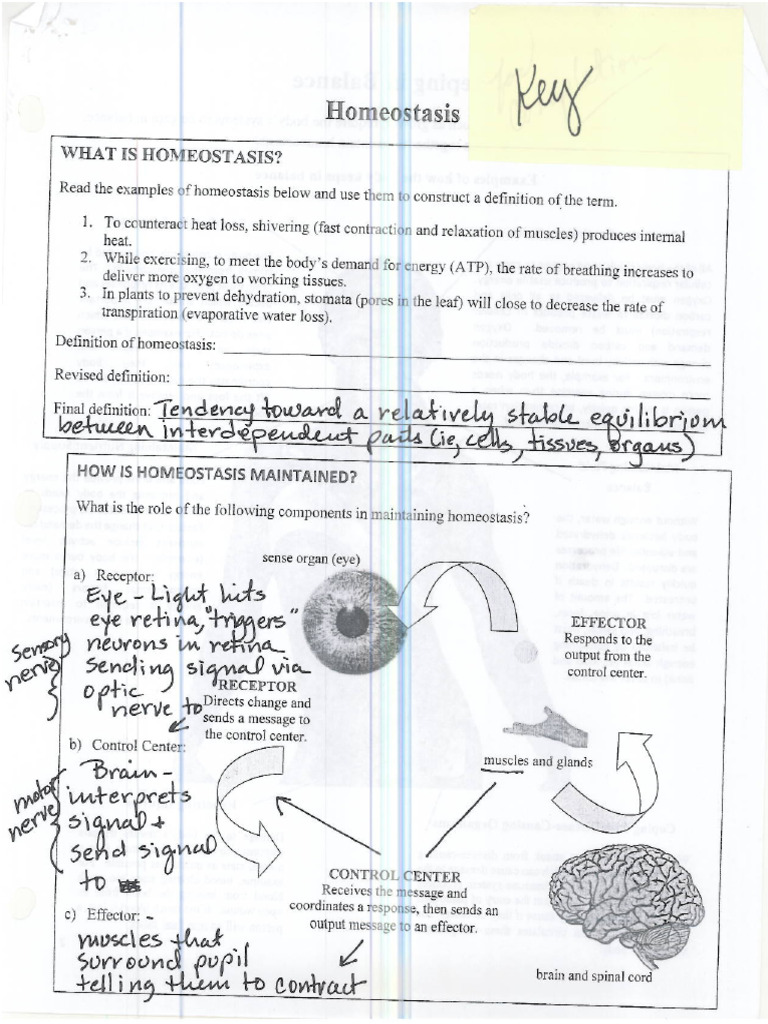 Key
Homeostasis
WHAT IS HOMEOSTASIS?
Read the examples of homeostasis below and use them to construct a definition of the term.
1. To counteract heat loss, shivering (fast contraction and relaxation of muscles) produces internal
heat.
2. While exercising, to meet the body's demand for energy (ATP), the rate of breathing increases to
deliver more oxygen to working tissues.
3. In plants to prevent dehydration, stomata (pores in the leaf) will close to decrease the rate of
transpiration (evaporative water loss).
Definition of homeostasis:
Revised definition:
Final definition: Tendency toward a relatively stable equilibrium
between interdependent parts (ie, cells, tissues, organs)
HOW IS HOMEOSTASIS MAINTAINED?
What is the role of the following components in maintaining homeostasis?
sense organ (eye)
a) Receptor:
Eye - Light hits
eye retina, "triggers"
neurons in retina
sending signal via
optic
nerve to
sensory
nerve
RECEPTOR
Directs change and
sends a message to
the control center.
EFFECTOR
Responds to the
output from the
control center.
muscles and glands
b) Control Center:
Brain -
interprets
signal +
send signal
to
motor
nerve
CONTROL CENTER
Receives the message and
coordinates a response, then sends an
output message to an effector.
brain and spinal cord
c) Effector: -
muscles that
surround pupil
telling them to contract